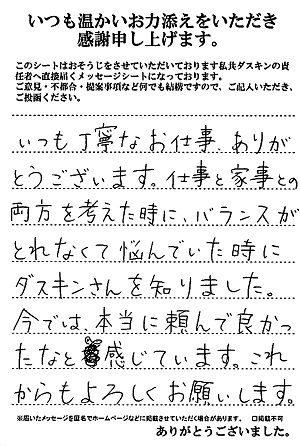 いつも温かいお力添えをいただき
感謝申し上げます。
このシートはおそうじをさせていただいております私共ダスキンの責
任者へ直接届くメッセージシートになっております。
ご意見・不都合・提案事項など何でも結構ですので、ご記入いただき、
ご投函ください。
いつも丁寧なお仕事、ありが
とうございます。仕事と家事との
両方を考えた時に、バランスが
とれなくて悩んでいた時に
ダスキンさんを知りました。
今では、本当に頼んで良かっ
たなと感じています。これ
からもよろしくお願いします。
※届いたメッセージを匿名でホームページなどに掲載させていただく場合があります。 □掲載不可
ありがとうございました。